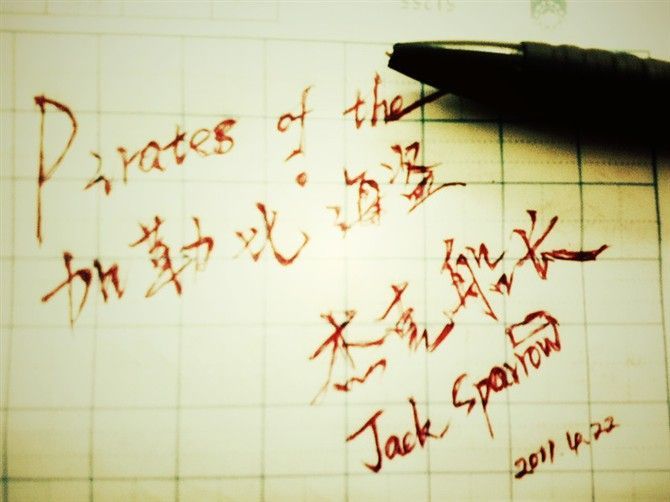 Pirates of the
加勒比海盗
杰克船长
Jack Sparrow
2011.4.22